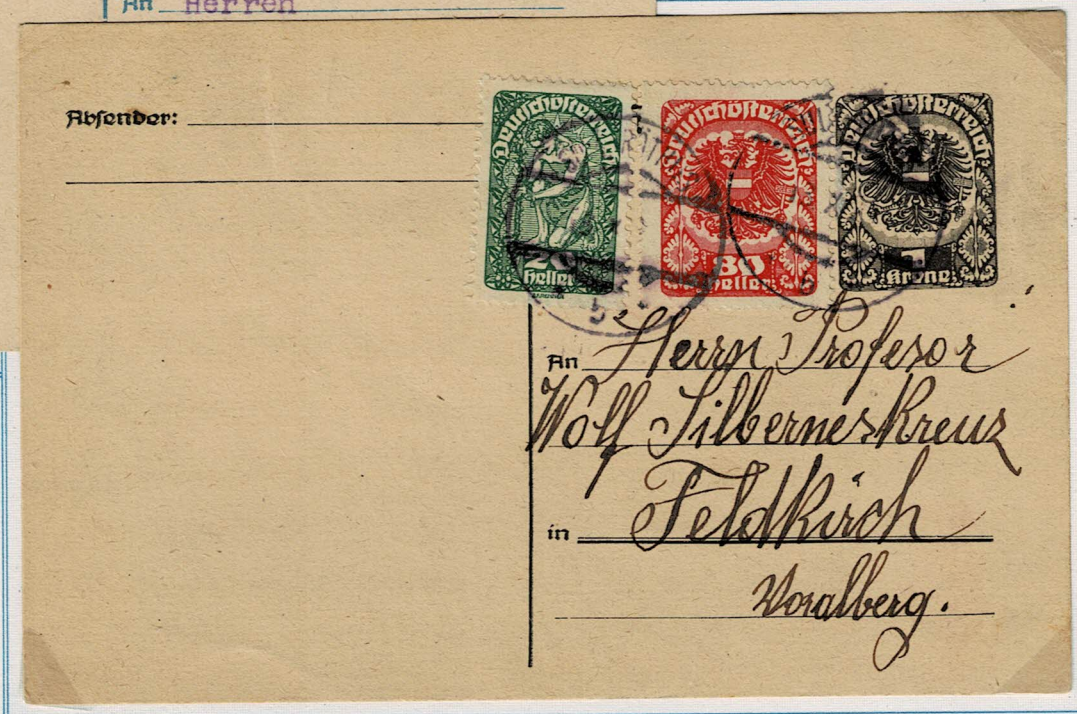 An Herren
Absender:
Deutschösterreich
20
Heller
Deutschösterreich
80
Heller
Deutschösterreich
1
Krone
An Herrn Profesor
Wolf Silbernes Kreuz
in Feldkirch
Voralberg.